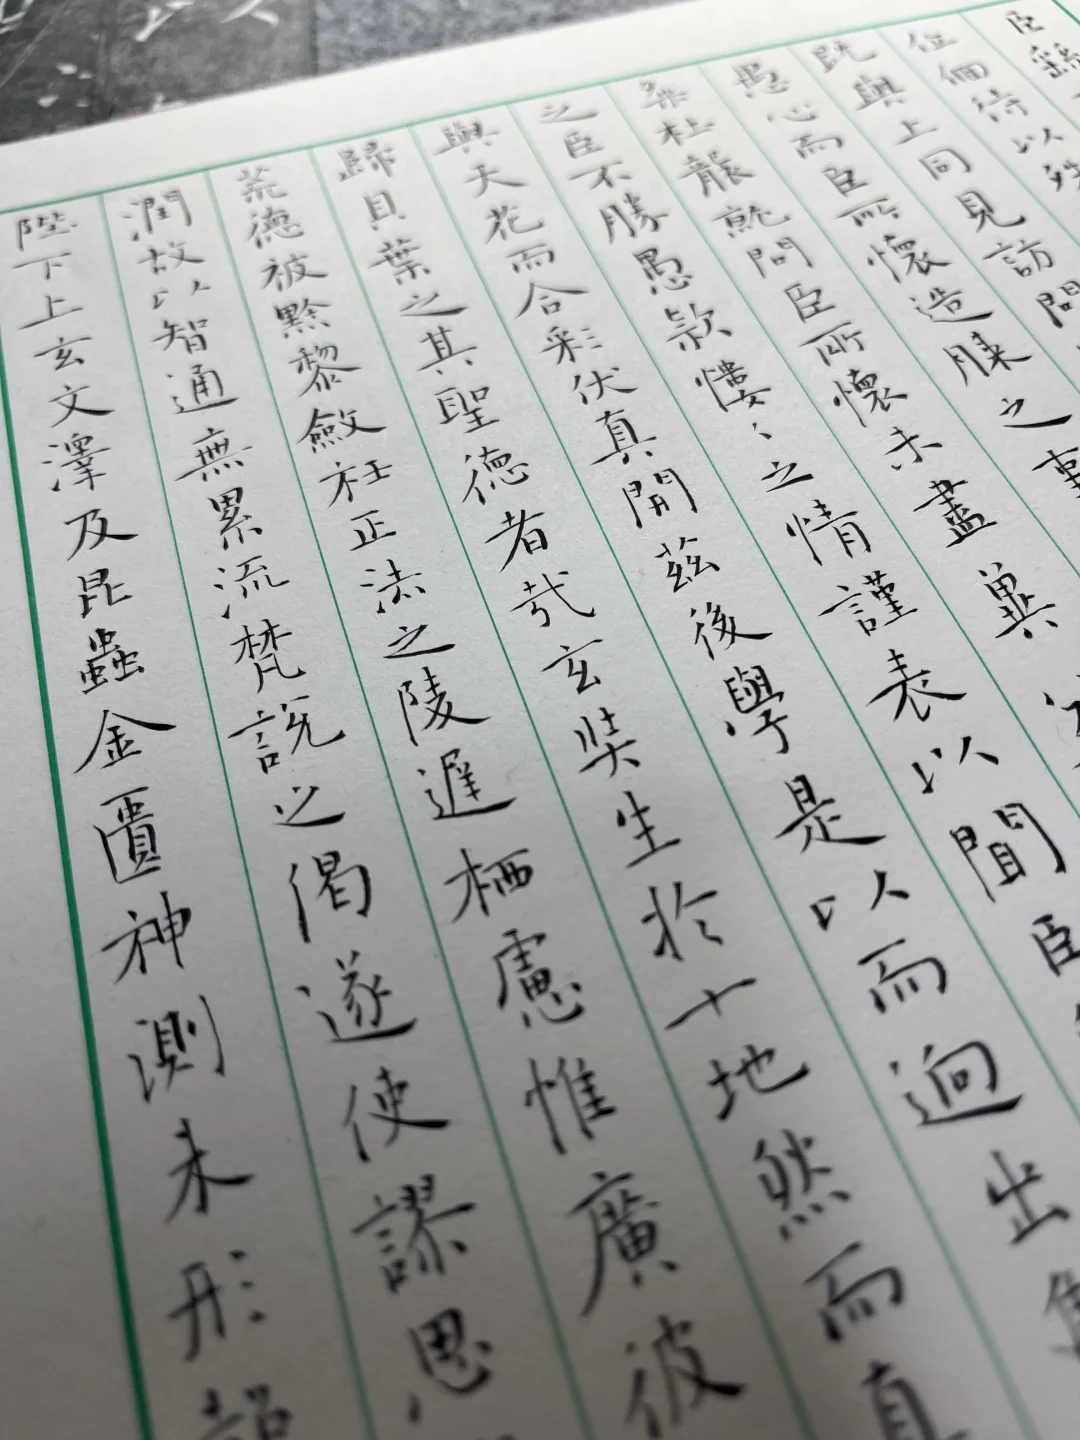 臣
位個待以殊
既與上同見訪問
愚心而臣所懷造膝之事
無杜襲就問臣所懷未盡冀
之臣不勝愚款慺〻之情謹表以聞臣
與天花而合彩伏真開茲後學是以而迥出
歸貝葉之其聖德者哉玄奘生於十地然而真
荒德被黔黎斂衽正法之陵遲栖慮惟廣彼
潤故以智通無累流梵説之偈遂使謬思
陛下上玄文澤及昆蟲金匱神測未形